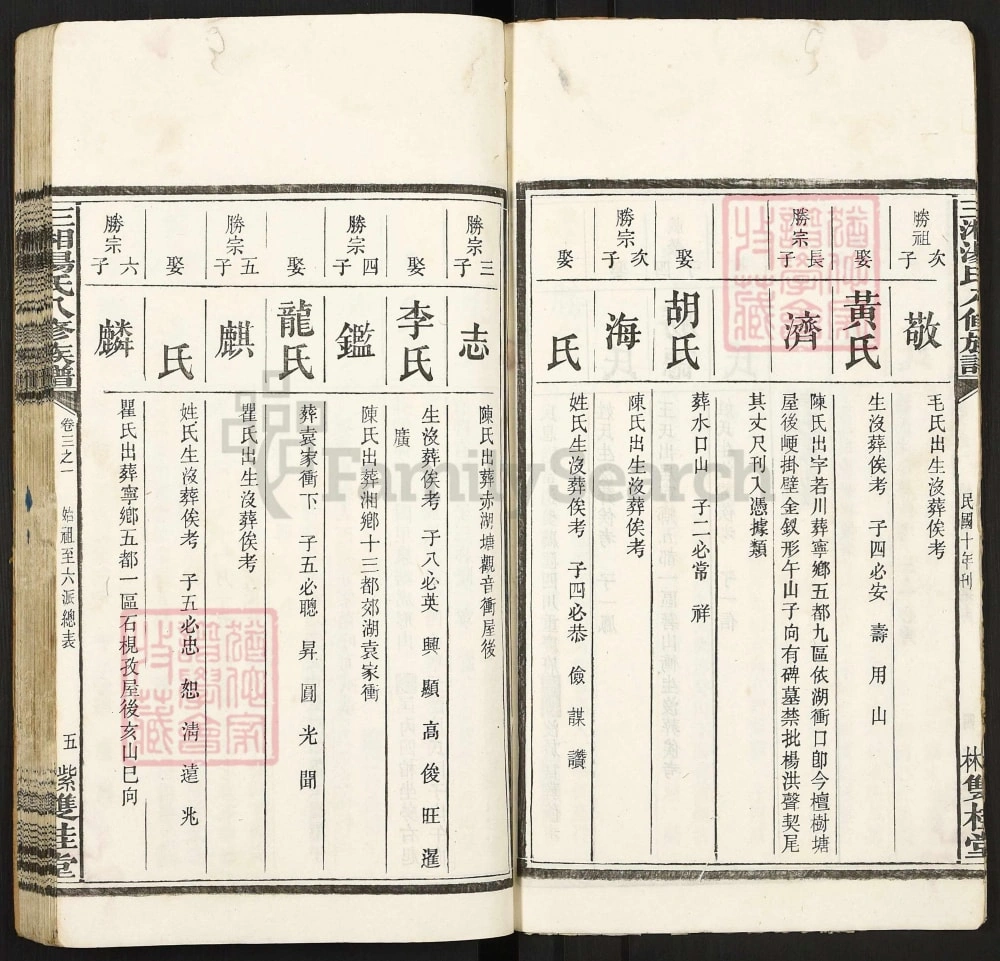 三湘湯氏八修族譜
民國十年刊
林雙桂堂
勝祖次子
敬
毛氏出生沒葬俟考
娶
黃氏
生沒葬俟考 子四必安 壽 用 山
勝宗長子
濟
陳氏出字若川葬寧鄉五都九區依湖衝口卽今檀樹塘
屋後峺掛壁金釵形午山子向有碑墓禁批楊洪聲契尾
其丈尺刊入憑據類
娶
胡氏
葬水口山 子二必常 祥
勝宗次子
海
陳氏出生沒葬俟考
娶
氏
姓氏生沒葬俟考 子四必恭 儉 謀 讚
勝宗三子
志
陳氏出葬赤湖塘觀音衝屋後
娶
李氏
生沒葬俟考 子八必英 興 顯 高 俊 旺 暹
廣
勝宗四子
鑑
陳氏出葬湘鄉十三都郊湖袁家衝
娶
龍氏
葬袁家衝下 子五必聰 昇 圓 光 聞
勝宗五子
麒
瞿氏出生沒葬俟考
娶
氏
姓氏生沒葬俟考 子五必忠 恕 淸 遠 兆
勝宗六子
麟
瞿氏出葬寧鄉五都一區石梘孜屋後亥山巳向
三湘湯氏八修族譜
卷三之一
始祖至六派總表
五
紫雙桂堂
FamilySearch